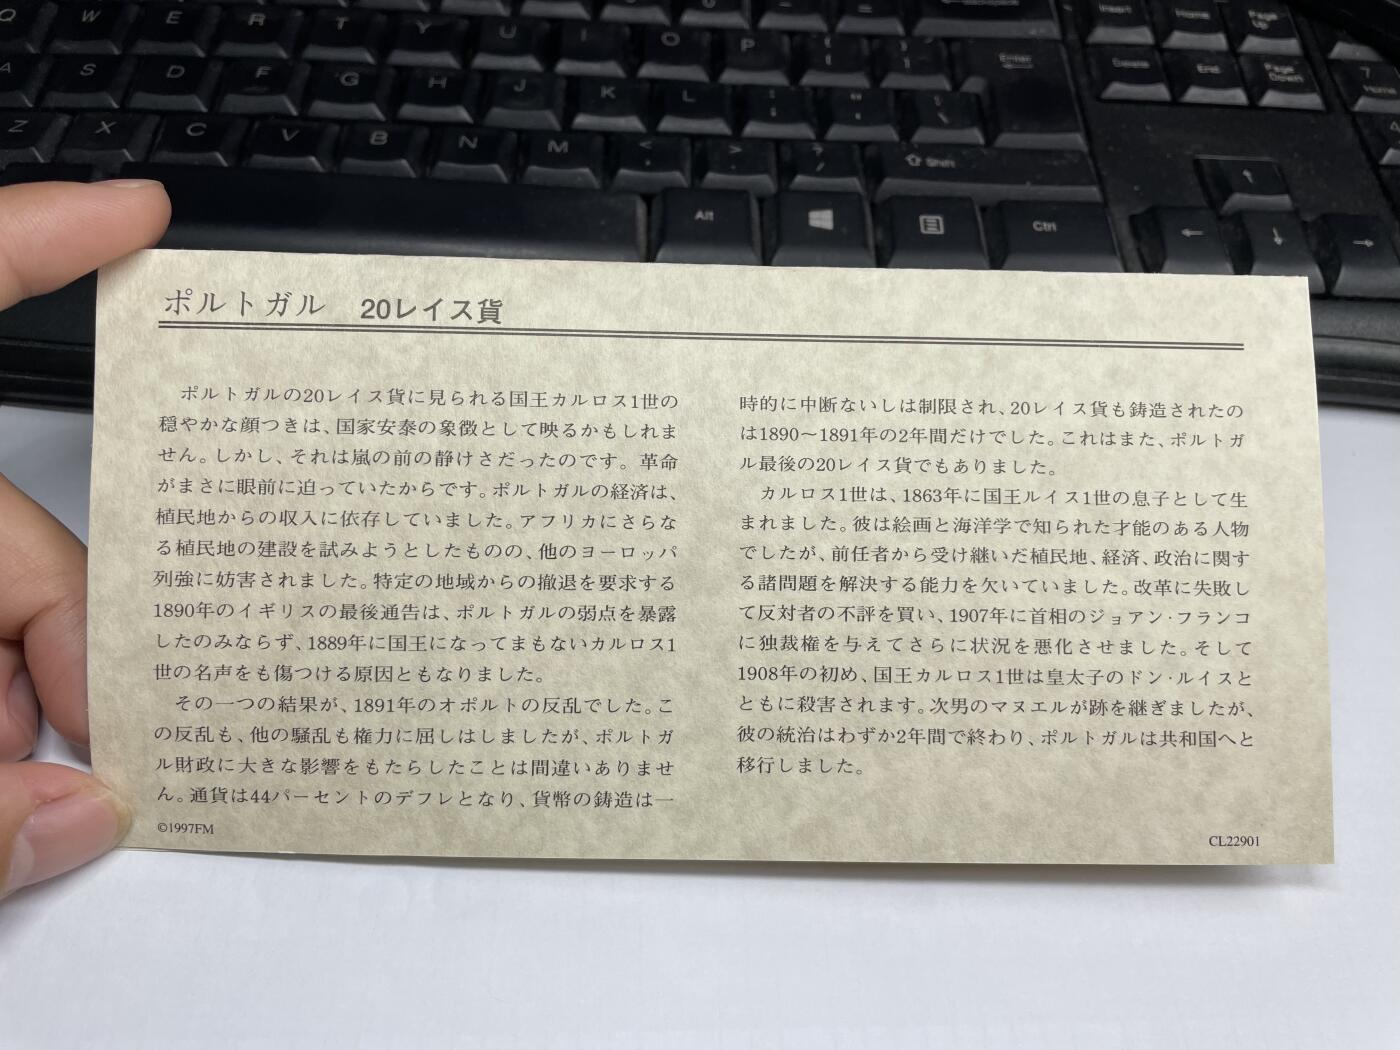 Q W E R T Y U I O P
A S D F G H J K L
Z X C V B N M < >
Insert Home Page Up
Delete End Page Down
Enter
7 Home
Shift
Alt
Ctrl
ポルトガル 20レイス貨
ポルトガルの20レイス貨に見られる国王カルロス1世の
穏やかな顔つきは、国家安泰の象徴として映るかもしれま
せん。しかし、それは嵐の前の静けさだったのです。革命
がまさに眼前に迫っていたからです。ポルトガルの経済は、
植民地からの収入に依存していました。アフリカにさらな
る植民地の建設を試みようとしたものの、他のヨーロッパ
列強に妨害されました。特定の地域からの撤退を要求する
1890年のイギリスの最後通告は、ポルトガルの弱点を暴露
したのみならず、1889年に国王になってまもないカルロス1
世の名声をも傷つける原因ともなりました。
その一つの結果が、1891年のオポルトの反乱でした。こ
の反乱も、他の騒乱も権力に屈しはしましたが、ポルトガ
ル財政に大きな影響をもたらしたことは間違いありませ
ん。通貨は44パーセントのデフレとなり、貨幣の鋳造は一
©1997FM
時的に中断ないしは制限され、20レイス貨も鋳造されたの
は1890〜1891年の2年間だけでした。これはまた、ポルトガ
ル最後の20レイス貨でもありました。
カルロス1世は、1863年に国王ルイス1世の息子として生
まれました。彼は絵画と海洋学で知られた才能のある人物
でしたが、前任者から受け継いだ植民地、経済、政治に関す
る諸問題を解決する能力を欠いていました。改革に失敗し
て反対者の不評を買い、1907年に首相のジョアン・フランコ
に独裁権を与えてさらに状況を悪化させました。そして
1908年の初め、国王カルロス1世は皇太子のドン・ルイスと
ともに殺害されます。次男のマヌエルが跡を継ぎましたが、
彼の統治はわずか2年間で終わり、ポルトガルは共和国へと
移行しました。
CL22901